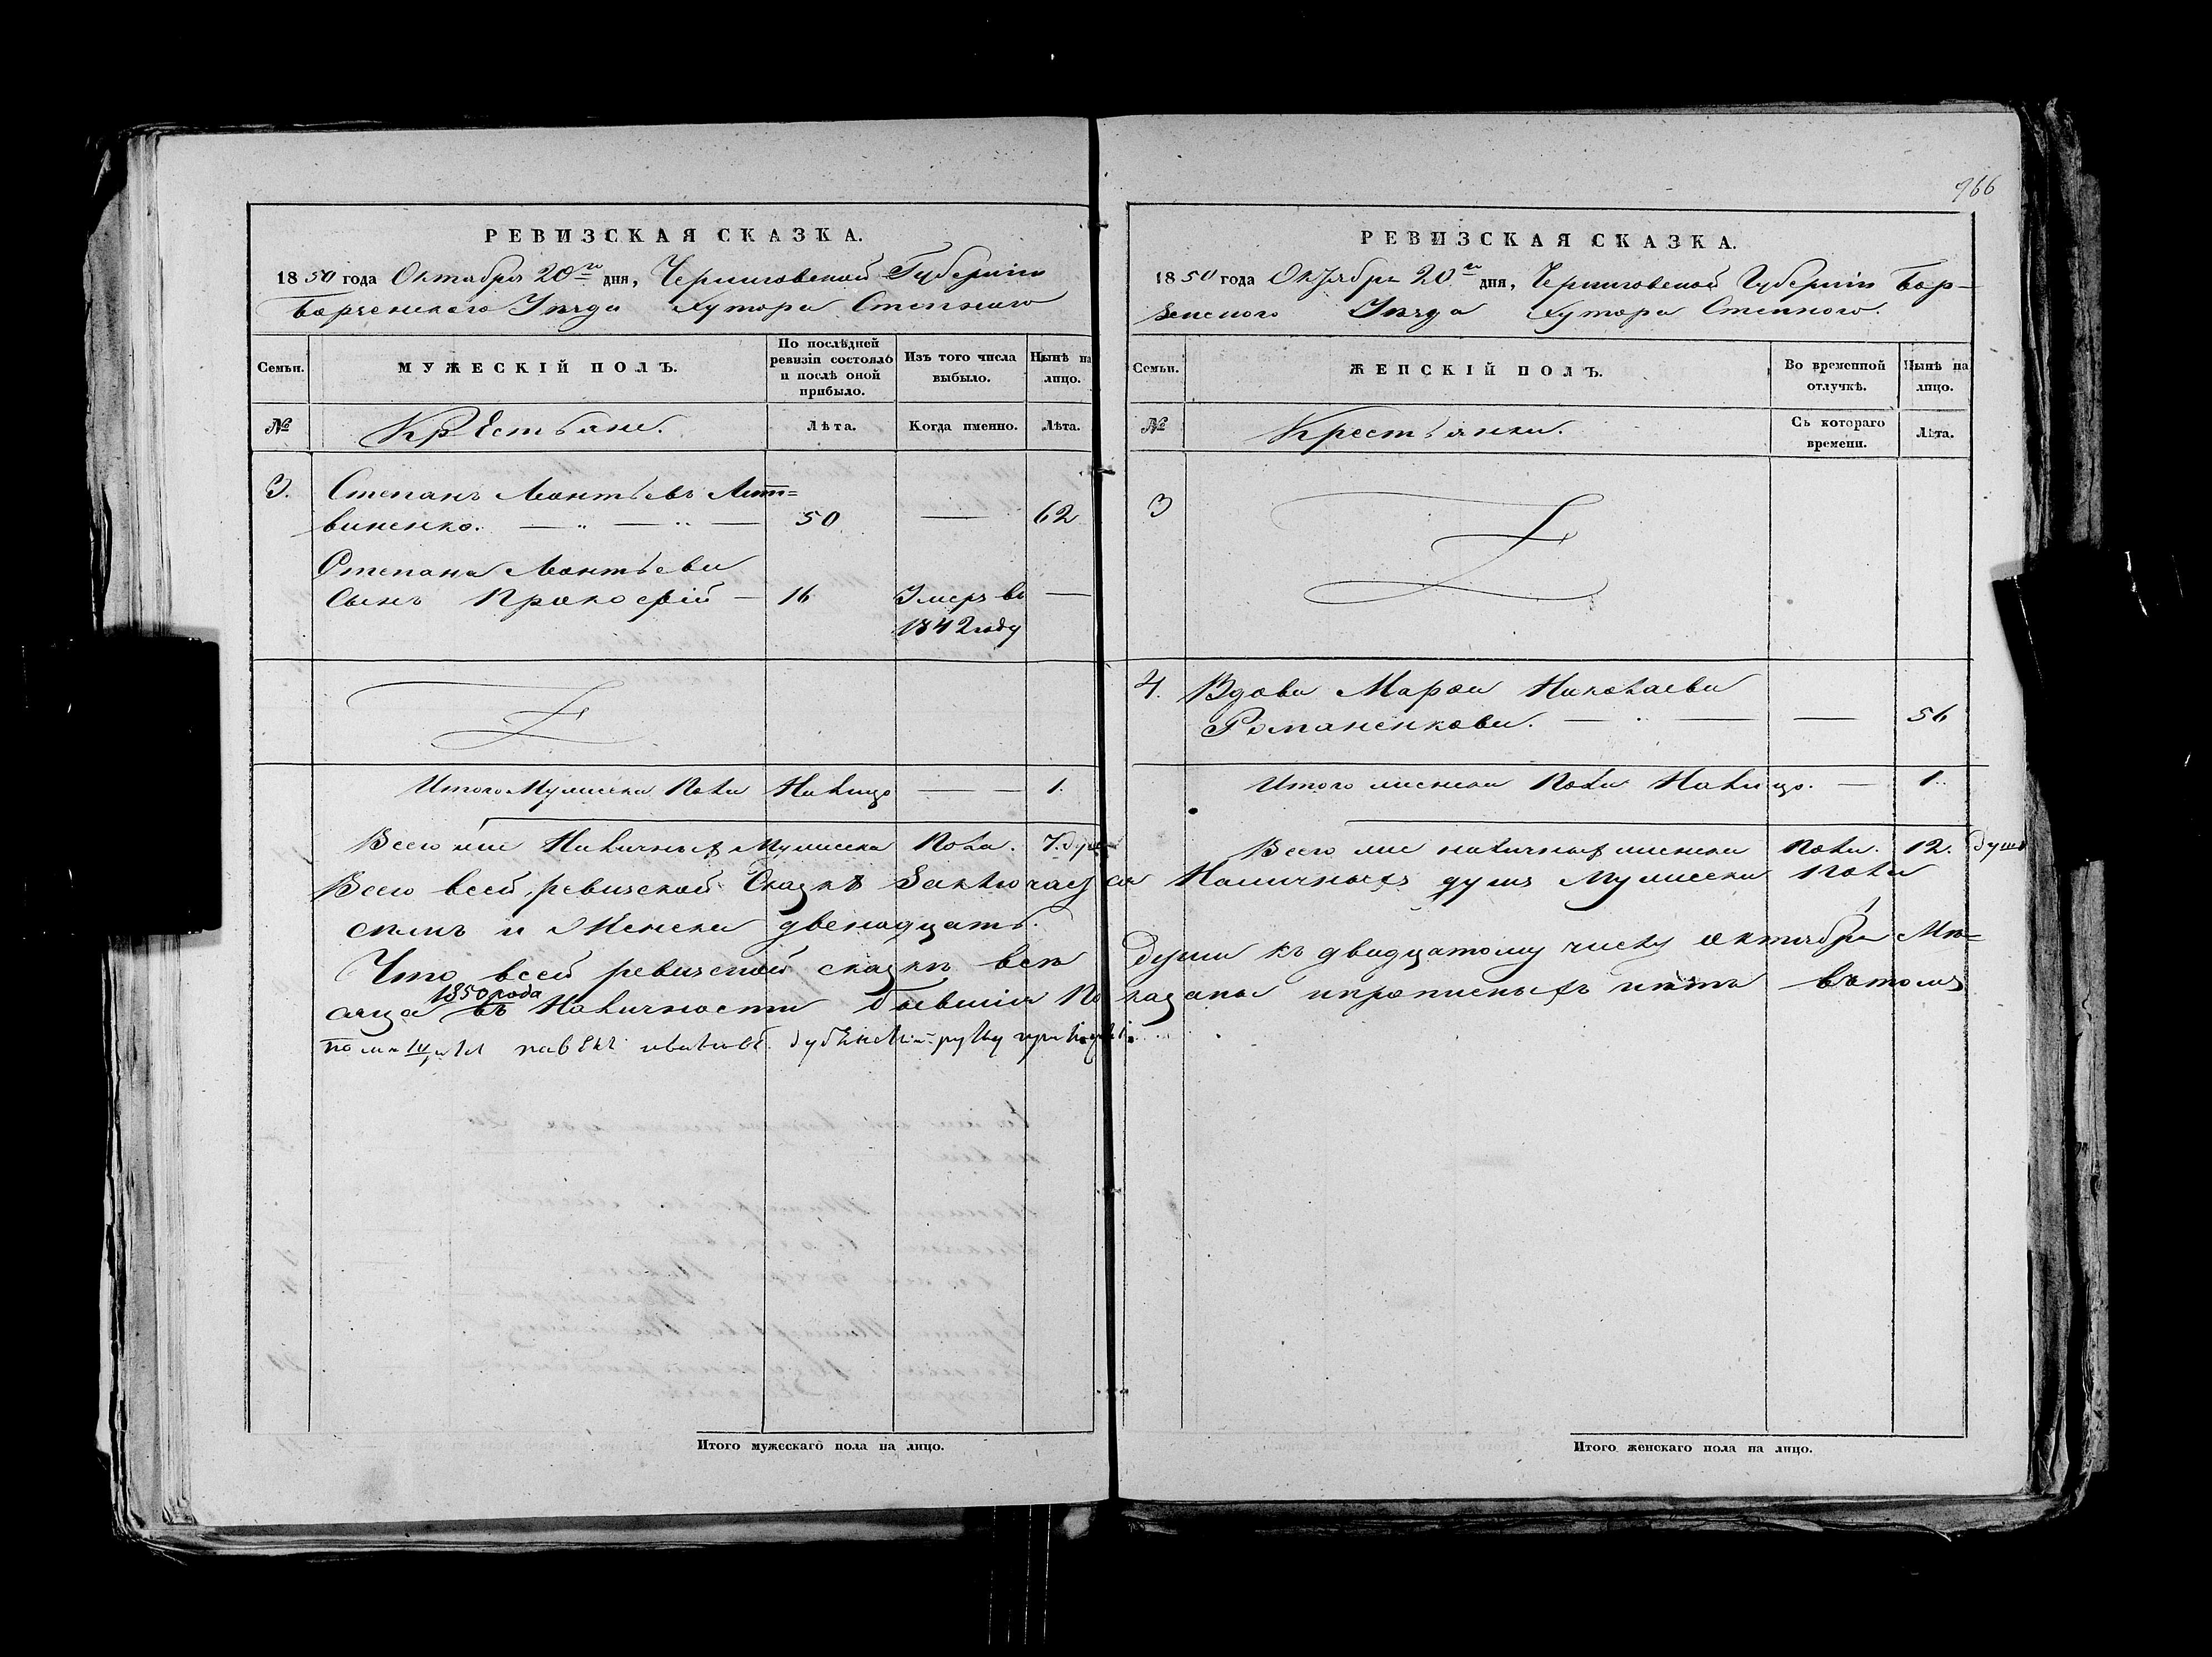 966
РЕВИЗСКАЯ СКАЗКА.
1850 года Октября 20го дня, Черниговской Губерніи
Борзенскаго Уезда Хутора Степнаго
Семьи. МУЖЕСКІЙ ПОЛЪ. По послѣдней ревизіи состояло и послѣ оной прибыло. Изъ того числа выбыло. Нынѣ на лицо.
№ Крестьяне. Лѣта. Когда именно. Лѣта.
3. Степанъ Леонтьевъ Лит=
виненко. 50 — 62
Степана Леонтьева
Сынъ Прокофій — 16 Умеръ въ —
1842 году
Итого Мужеска Пола Налицо — — 1.
Всего же Наличных Мужеска Пола. 7. душ
РЕВИЗСКАЯ СКАЗКА.
1850 года Октября 20го дня, Черниговской Губерніи Бор–
зенского Уезда Хутора Степного.
Семьи. ЖЕНСКІЙ ПОЛЪ. Во временной отлучкѣ. Нынѣ на лицо.
№ Крестьянки. Съ котораго времени. Лѣта.
3
4. Вдова Марфа Николаева
Романенкова. — — 56
Итого женска Пола Налицо. — 1.
Всего же наличных женска Пола. 12. душъ
Всего всей ревизской Сказкѣ Заключается Наличныхъ душъ Мужеска Пола
семь и Женска двенадцать.
Что всей ревизской сказкѣ всѣ души къ двадцатому числу октября Мѣ=
сяца 1850 года въ Наличности бывшія Показаны и прописныхъ нѣтъ въ томъ
Итого мужескаго пола на лицо.
Итого женскаго пола на лицо.